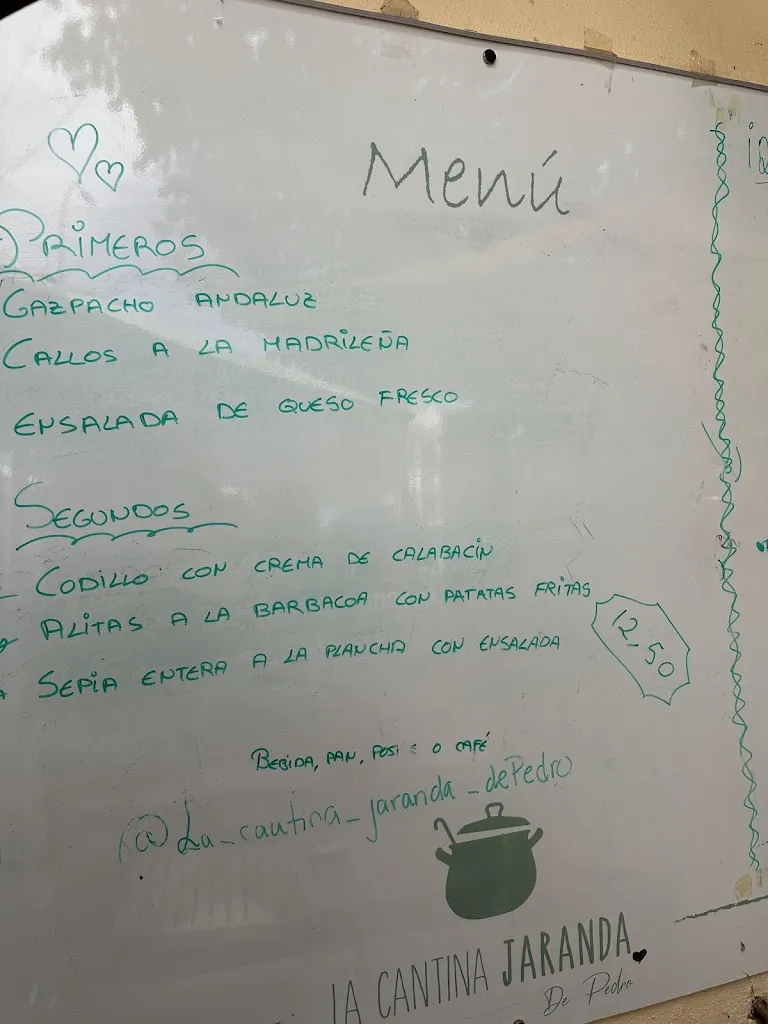 Menú
PRIMEROS
GAZPACHO ANDALUZ
CALLOS A LA MADRILEÑA
ENSALADA DE QUESO FRESCO
SEGUNDOS
CODILLO CON CREMA DE CALABACÍN
ALITAS A LA BARBACOA CON PATATAS FRITAS
SEPIA ENTERA A LA PLANCHA CON ENSALADA
12-50
BEBIDA, PAN, O CAFÉ
@La_cantina_jaranda_dePedro
LA CANTINA JARANDA
De Pedro